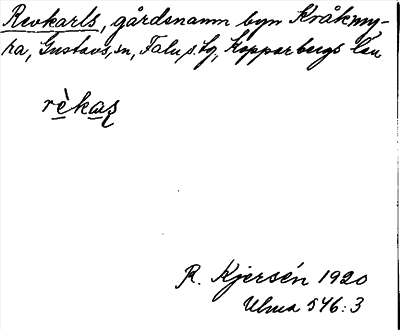 Revkarls, gårdsnamn byn Kråkmy-
ra, Gustavs, sn, Falu, s. tg, Kopparbergs län
rèkas
R. Kjersén 1920
Ulma 546:3